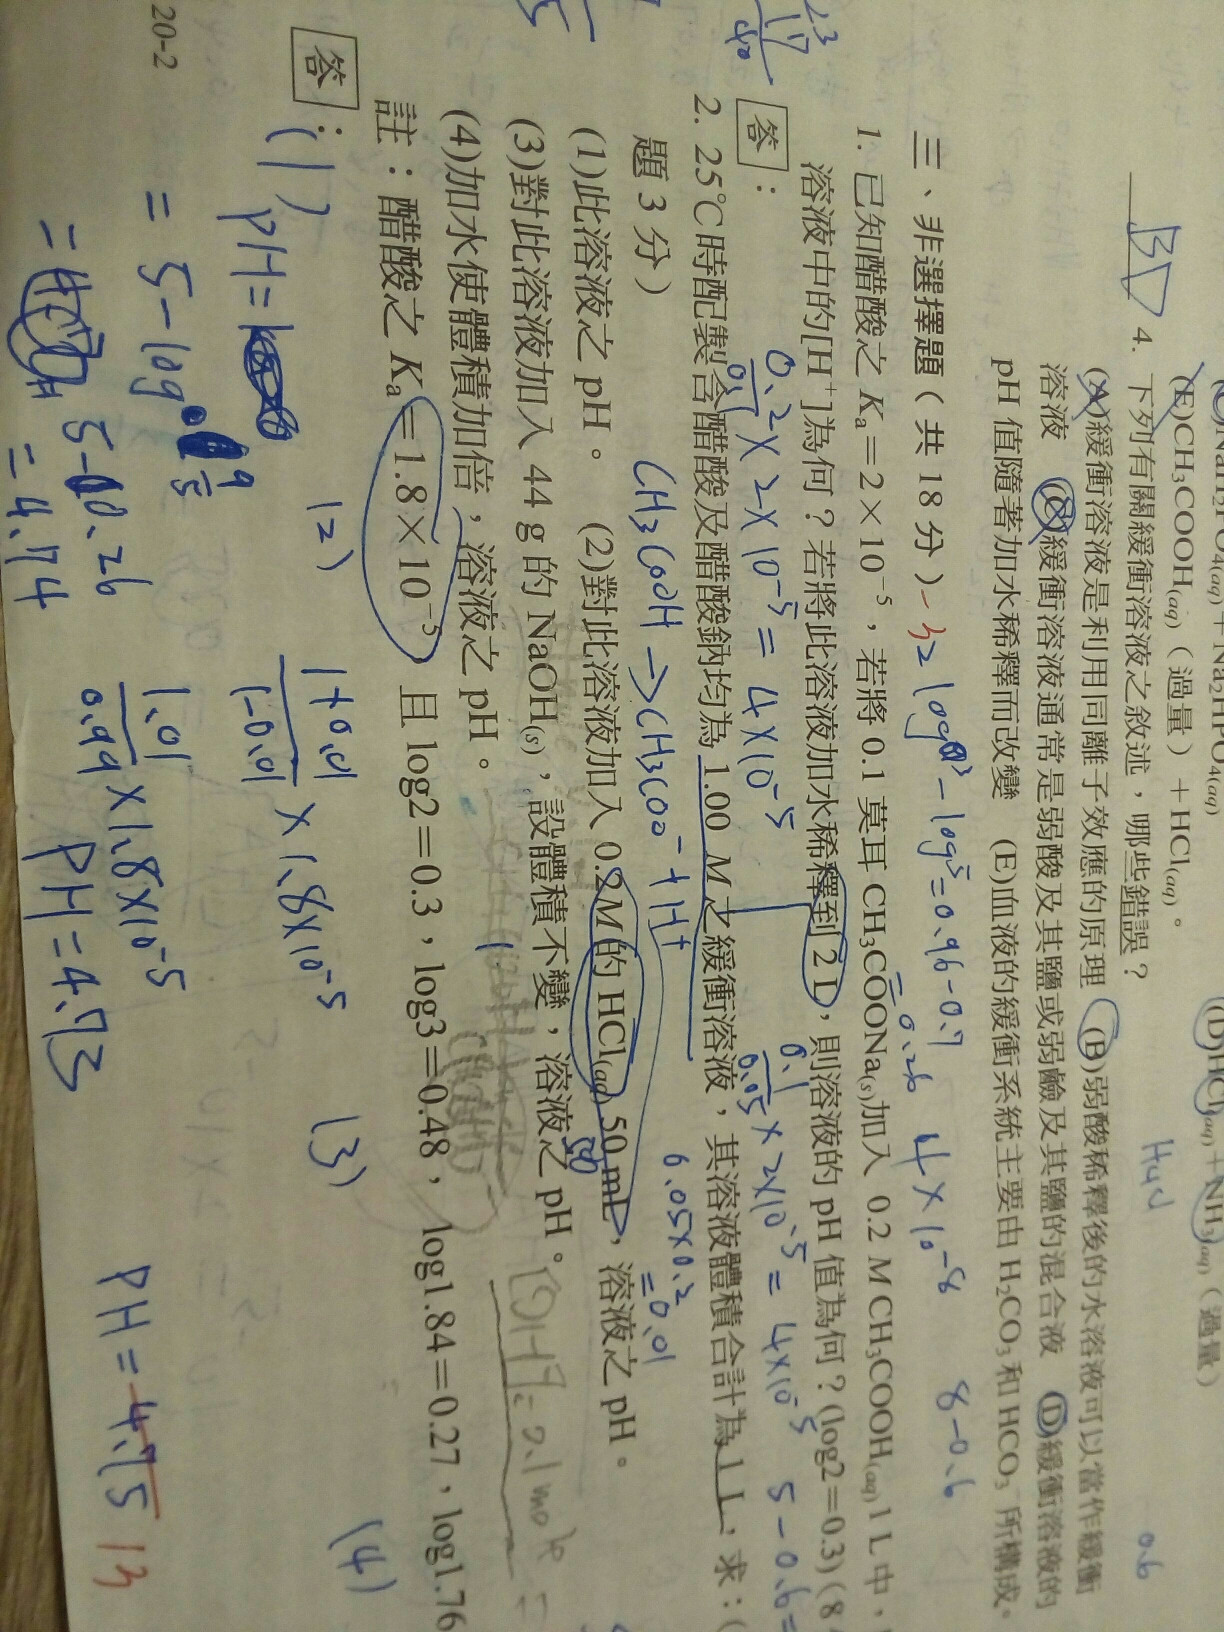 (C)NaH₂PO₄(aq)+Na₂HPO₄(aq)
(D)HCl(aq)+NH₃(aq)（過量）
(E)CH₃COOH(aq)（過量）+HCl(aq)。
4. 下列有關緩衝溶液之敘述，哪些錯誤？
(A)緩衝溶液是利用同離子效應的原理 (B)弱酸稀釋後的水溶液可以當作緩衝
溶液 (C)緩衝溶液通常是弱酸及其鹽或弱鹼及其鹽的混合液 (D)緩衝溶液的
pH 值隨著加水稀釋而改變 (E)血液的緩衝系統主要由 H₂CO₃和 HCO₃⁻所構成。
三、非選擇題（共 18 分）
1. 已知醋酸之 Kₐ=2×10⁻⁵，若將 0.1 莫耳 CH₃COONa(s)加入 0.2 M CH₃COOH(aq) 1 L 中，
溶液中的[H⁺]為何？若將此溶液加水稀釋到 2 L，則溶液的 pH 值為何？(log2=0.3)(8
0.2×2×10⁻⁵=4×10⁻⁵
4×10⁻⁸
8-0.6
0.6
5-0.6=
答：
2. 25℃時配製含醋酸及醋酸鈉均為 1.00 M 之緩衝溶液，其溶液體積合計為 1 L，求：(
題 3 分）
CH₃COOH→CH₃COO⁻+H⁺
0.05×0.2
=0.01
(1)此溶液之 pH。 (2)對此溶液加入 0.2M 的 HCl(aq) 50 mL，溶液之 pH。
(3)對此溶液加入 44 g 的 NaOH(s)，設體積不變，溶液之 pH。
(4)加水使體積加倍，溶液之 pH。
註：醋酸之 Kₐ=1.8×10⁻⁵，且 log2=0.3，log3=0.48，log1.84=0.27，log1.76
答：
(1)
pH=
=5-log 9/5
5-0.26
=4.74
(2)
1+0.01/1-0.01 ×1.8×10⁻⁵
1.01/0.99 ×1.8×10⁻⁵
pH=4.73
(3)
pH=4.75 13
(4)
20-2